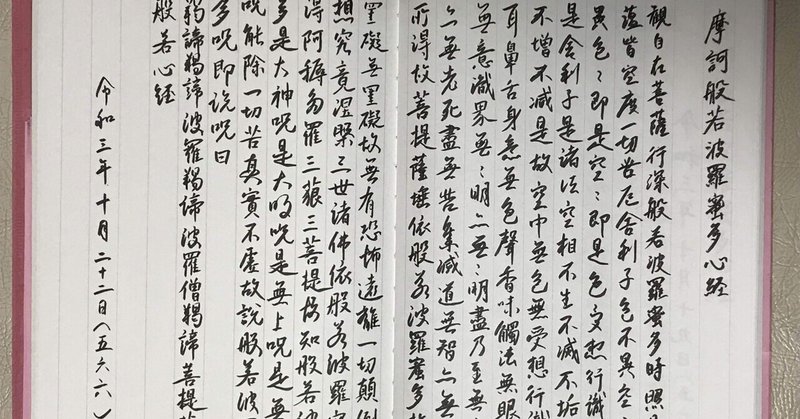 摩訶般若波羅蜜多心経
觀自在菩薩行深般若波羅蜜多時照
蘊皆空度一切苦厄舎利子色不異空
異色〻即是空〻即是色受想行識
是舎利子是諸法空相不生不滅不垢
不増不減是故空中無色無受想行識
耳鼻舌身意無色聲香味觸法無眼
無意識界無〻明亦無〻明盡乃至無
亦無老死盡無苦集滅道無智亦無
所得故菩提薩埵依般若波羅蜜多故
罣礙無罣礙故無有恐怖遠離一切顛倒
想究竟涅槃三世諸佛依般若波羅蜜
得阿耨多羅三藐三菩提故知般若波
多是大神呪是大明呪是無上呪是無
呪能除一切苦真實不虚故説般若波
多呪即説呪曰
羯諦羯諦波羅羯諦波羅僧羯諦菩提薩
般若心経
令和三年十月二十二日(五六六)